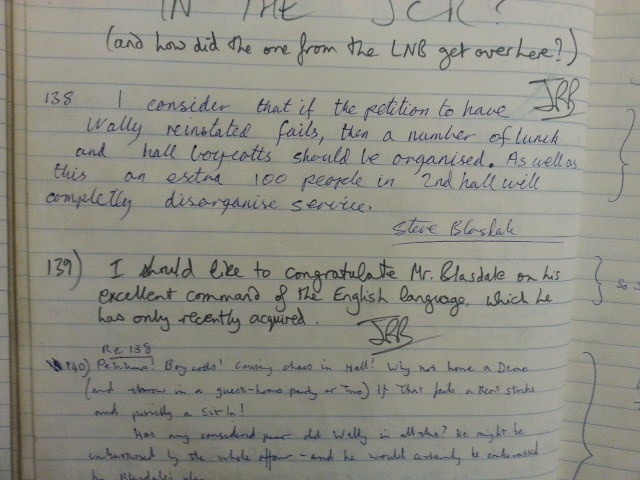 IN THE JCR?
(and how did the one from the LNB get over here?)
JRB
138 I consider that if the petition to have
Wally reinstated fails, then a number of lunch
and hall boycotts should be organised. As well as
this an extra 100 people in 2nd hall will
completly disorganise service.
Steve Blasdale
139) I should like to congratulate Mr. Blasdale on his
excellent command of the English language, which he
has only recently acquired.
JRB
Re 138
140) Petitions! Boycotts! Causing chaos in Hall! Why not have a Demo
(and throw in a guest-hons party or two) If that fails a Rent strike
and possibly a Sit In!
Has any considered poor old Wally in all this? He might be
embarrassed by the whole affair - and he would certainly be embarrassed
by Blasdale's
so